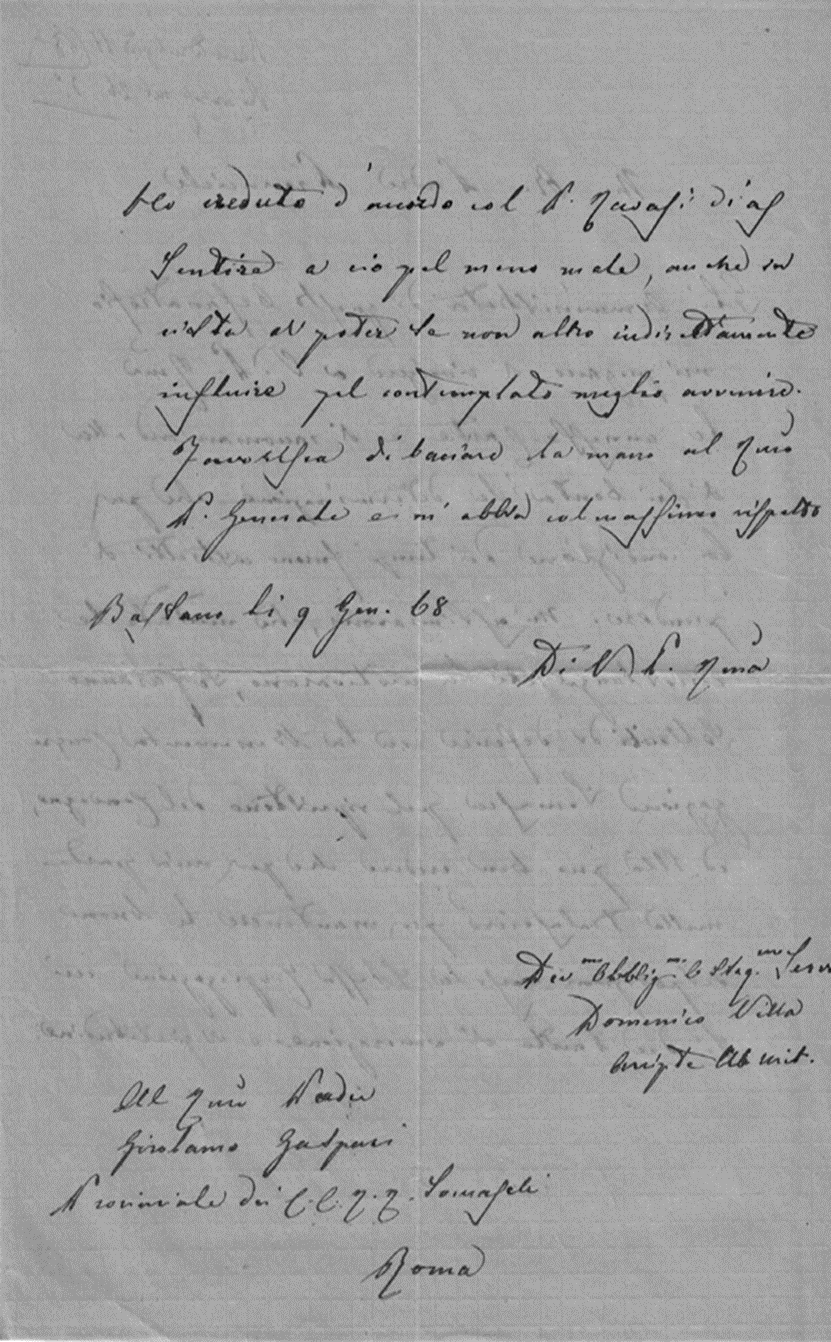 Ho creduto d'accordo col P. Ravasi di as
sentire a ciò pel meno male, anche in
vista di poter se non altro indirettamente
influire pel contemplato meglio avvenire.
Favorisca di baciare la mano al Rmo
P. Generale e m'abbia col massimo rispetto
Bassano li 9 Gen. 68
Di V. P. Rma
Devmo Obbligmo Osseq.mo Serv
Domenico Villa
Arcipte Ab. mit.
Al Rmo Padre
Girolamo Gaspari
Provinciale dei C.C. R.R. Somaschi
Roma